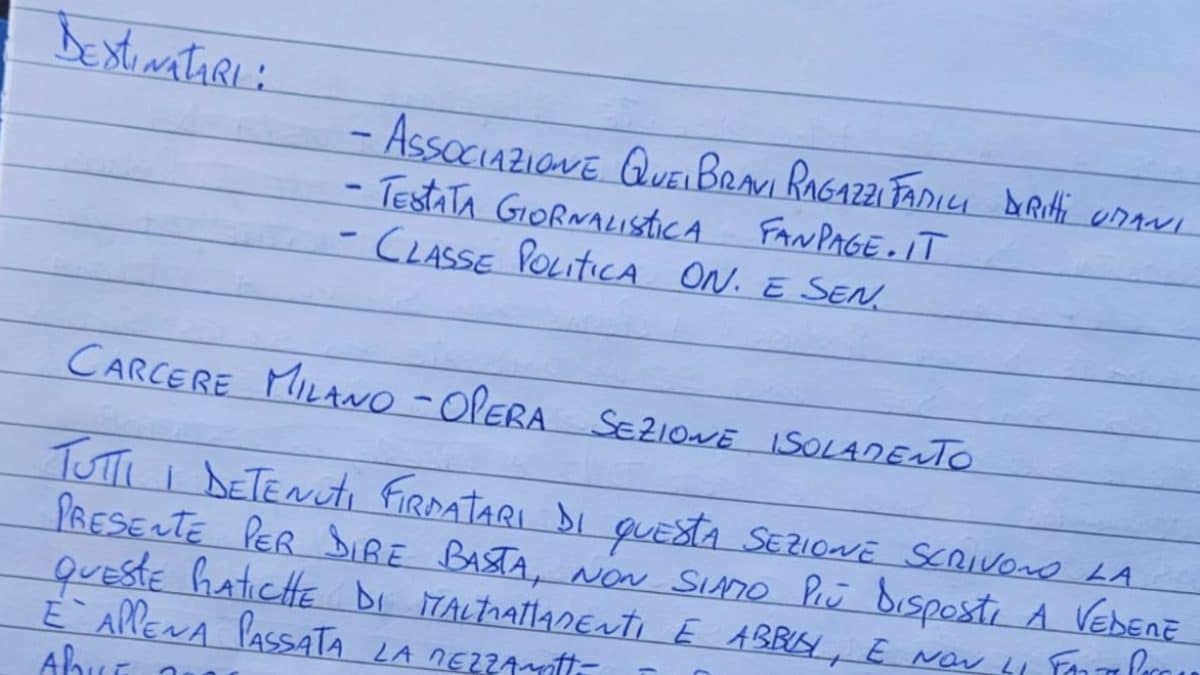 DESTINATARI:
- ASSOCIAZIONE QUEI BRAVI RAGAZZI FAMILY DIRITTI UMANI
- TESTATA GIORNALISTICA FANPAGE.IT
- CLASSE POLITICA ON. E SEN.
CARCERE MILANO - OPERA SEZIONE ISOLAMENTO
TUTTI I DETENUTI FIRMATARI DI QUESTA SEZIONE SCRIVONO LA
PRESENTE PER DIRE BASTA, NON SIAMO PIÙ DISPOSTI A VEDERE
QUESTE PRATICHE DI MALTRATTAMENTI E ABBUSI, E NON LI
È APPENA PASSATA LA MEZZANOTTE
APRILE